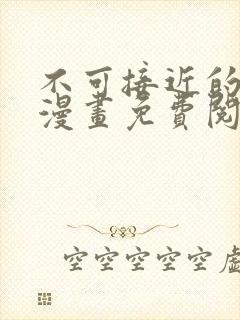 不可接近的
漫畫免費閱
空空空空空虛